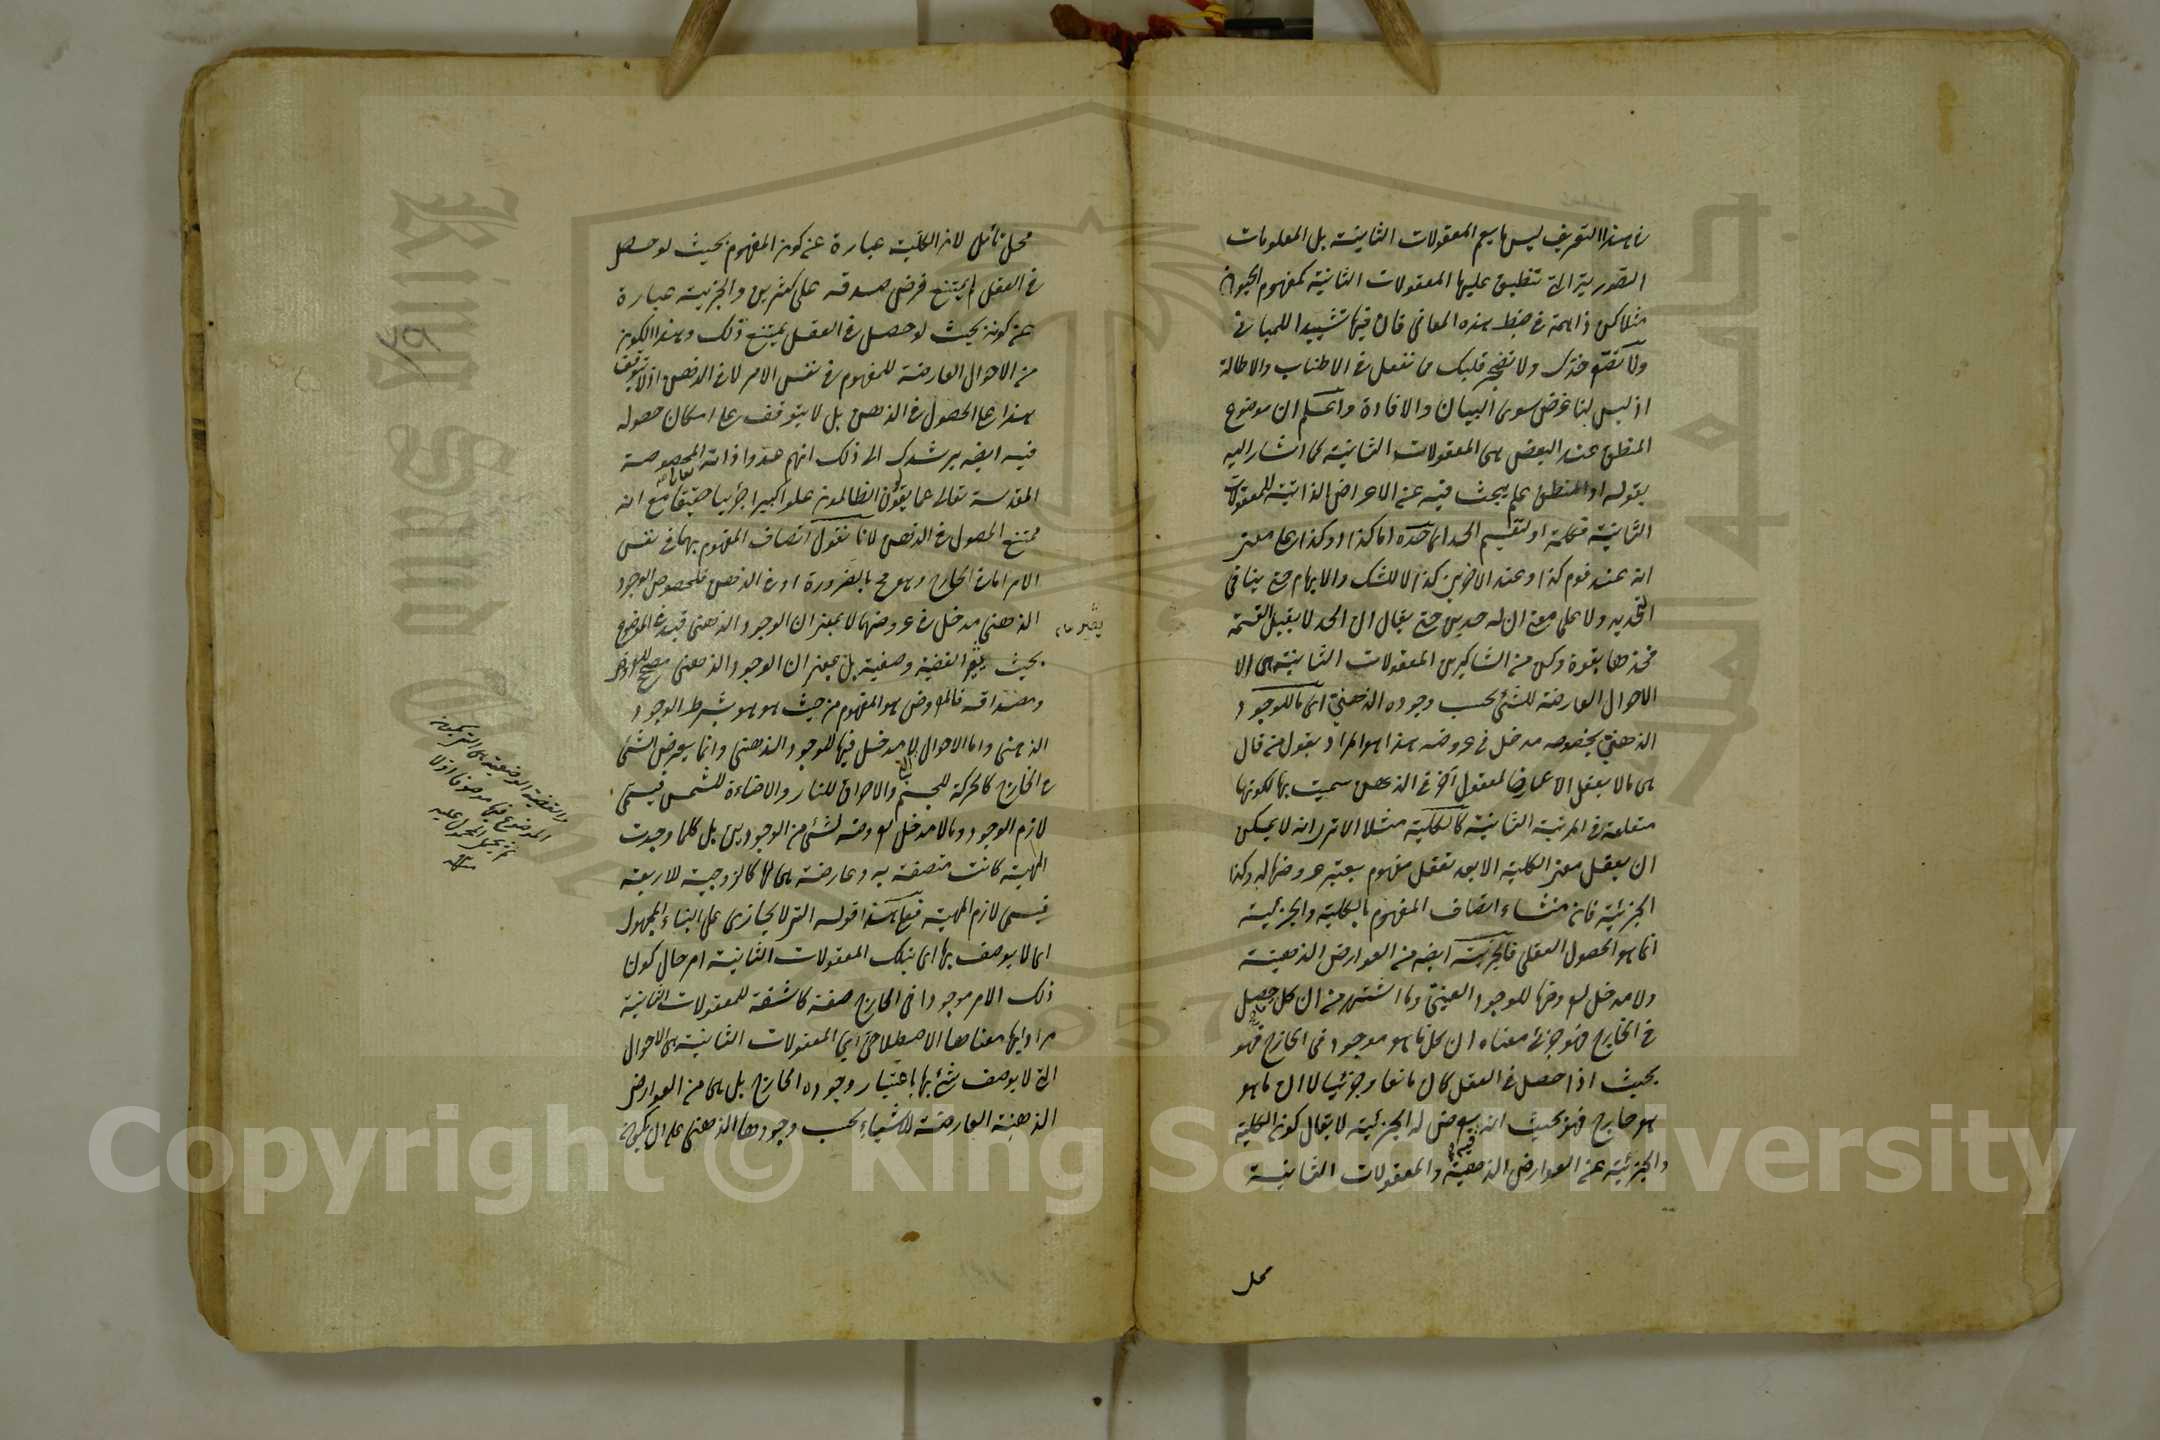 في هذا التعريف ليس ما يعم المعقولات الثانية بل المعلومات
التصورية التي تنطبق عليها المعقولات الثانية كمفهوم الحيوان
مثلا كن ذا همة في ضبط هذه المعاني فان فيها تشييدا للمباني
ولا تصعر خدك ولا تضجر قلبك مما نفعل في الاطناب والاطالة
اذ ليس لنا غرض سوى البيان والافادة واعلم ان موضوع
المنطق عند البعض هي المعقولات الثانية كما اشار اليه
بقوله او المنطق علم يبحث فيه عن الاعراض الذاتية للمعقولات
الثانية فكلمة او لتقسيم الحد اي حده اما كذا او كذا على معنى
انه عند قوم كذا وعند الاخرين كذا لا للشك والابهام حتى ينافي
التحديد ولا على معنى ان له حدين حتى يقال ان الحد لا يقبل القسمة
فخذها بقوة وكن من الشاكرين المعقولات الثانية هي الا
الاحوال العارضة للشئ بحسب وجوده الذهني اي ما للوجود
الذهني بخصوصه مدخل في عروضه هذا هو المراد بقول من قال
هي ما لا يعقل الا عارضا لمعقول آخر في الذهن سميت بها لكونها
متعلقة في المرتبة الثانية كالكلية مثلا الا ترى انه لا يمكن
ان يعقل معنى الكلية الا بعد تعقل مفهوم يعتبر عروضها له وكذا
الجزئية فان منشاء اتصاف المفهوم بالكلية والجزئية
انما هو الحصول العقلي فالجزئية ايضه من العوارض الذهنية
ولا مدخل لعروضها للوجود العيني وما اشتهر من ان كل حصل
في الخارج فهو جزئي معناه ان كل ما هو موجود في الخارج فهو
بحيث اذا حصل في العقل كان مانعا وجزئيا لا ان ما هو
هو خارج فهو بحيث انه يعرض له الجزئية لا يقال كون الكلية
والجزئية من العوارض الذهنية والمعقولات الثانية
فيه
محل
محل تأمل لان الكلية عبارة عن كون المفهوم بحيث لو حصل
في العقل لم يمتنع فرض صدقه على كثيرين والجزئية عبارة
عن كونه بحيث لو حصل في العقل يمتنع ذلك وهذا الكون
من الاحوال العارضة للمفهوم في نفس الامر لا في الذهن اذ لا يتوقف
هذا على الحصول في الذهن بل لا يتوقف على امكان حصوله
فيه ايضه يرشدك الى ذلك انهم عدوا ذاته المخصوصة
المقدسة تعالى عما يقول الظالمون علوا كبيرا جزئيا حقيقيا مع انه
ممتنع الحصول في الذهن لانا نقول اتصاف المفهوم بهما في نفس
الامر اما في الخارج وهو مح بالضرورة او في الذهن فلخصوص الوجود
الذهني مدخل في عروضهما لا بمعنى ان الوجود الذهني قيد في الموضوع
بحيث القضية وصفية بل بمعنى ان الوجود الذهني مصحح للعروض
ومصداقه فالمعروض هو المفهوم من حيث هو هو بشرط الوجود
الذهني واما الاحوال لا مدخل فيها للوجود الذهني وانما يعرض الشئ
في الخارج كالحركة للجسم والاحراق للنار والاضاءة للشمس فيسمى
لازم الوجود وما لا مدخل لعروضه لشئ من الوجودين بل كلما وجدت
المهية كانت متصفة به وعارضة هي لها كالزوجية للاربعة
فيسمى لازم المهية فعلى هذا قوله التي لا يحاذى على البناء للمجهول
اي لا يوصف بها اي بتلك المعقولات الثانية امر حال كون
ذلك الامر موجودا في الخارج صفة كاشفة للمعقولات الثانية
مرادا بها معناها الاصطلاحي اي المعقولات الثانية هي الاحوال
التي لا يوصف شئ بها باعتبار وجوده الخارج بل هي من العوارض
الذهنية العارضة للاشياء بحسب وجودها الذهني على ان يكون
والقضية الوصفية هي التي يكون
الموضوع فيها موصوفا اولا
ثم يحمل المحمول عليه
منه